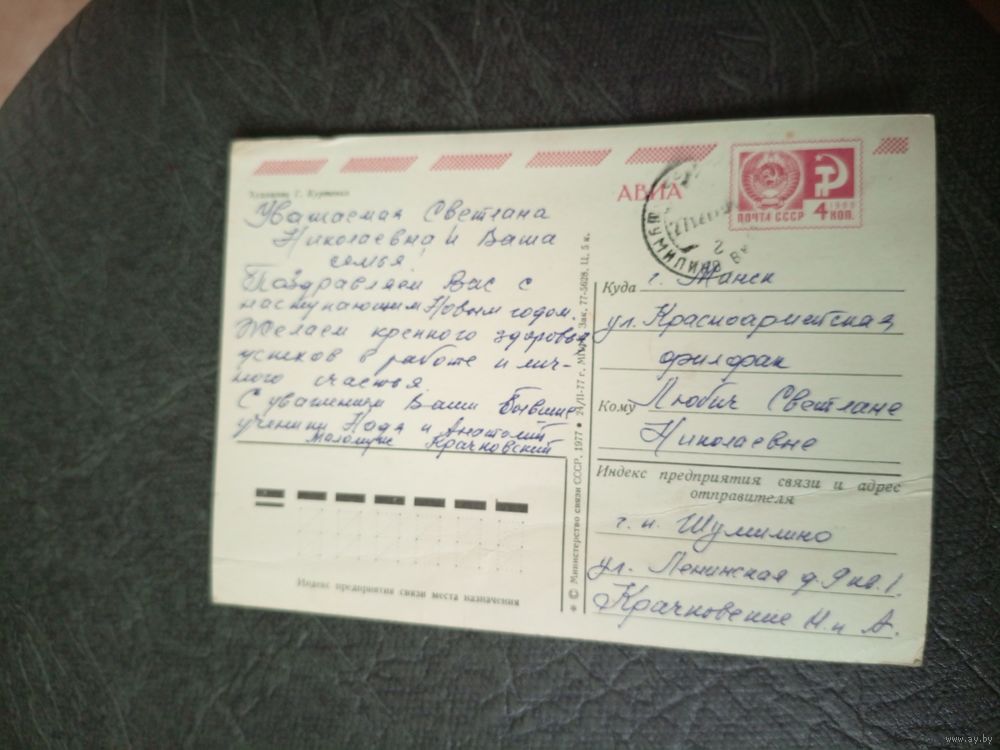 Художник Г. Куртенко
АВИА
ПОЧТА СССР
4 КОП.
1966
Уважаемая Светлана
Николаевна и Ваша
семья!
Поздравляем Вас с
наступающим Новым годом.
Желаем крепкого здоровья
успехов в работе и лич-
ного счастья
С уважением Ваши бывшие
ученики Надя и Анатолий
Крачковский
© Министерство связи СССР, 1977 • 24/II-77 г. Зак. 77-5628. Ц. 5 к.
Куда г.
ул. Красноармейская
филфак
Кому Любич Светлане
Николаевне
Индекс предприятия связи и адрес
отправителя
г. п. Шумилино
ул. Ленинская д. 9 кв. 1
Крачковские Н. и А.
Индекс предприятия связи места назначения
www.ay.by